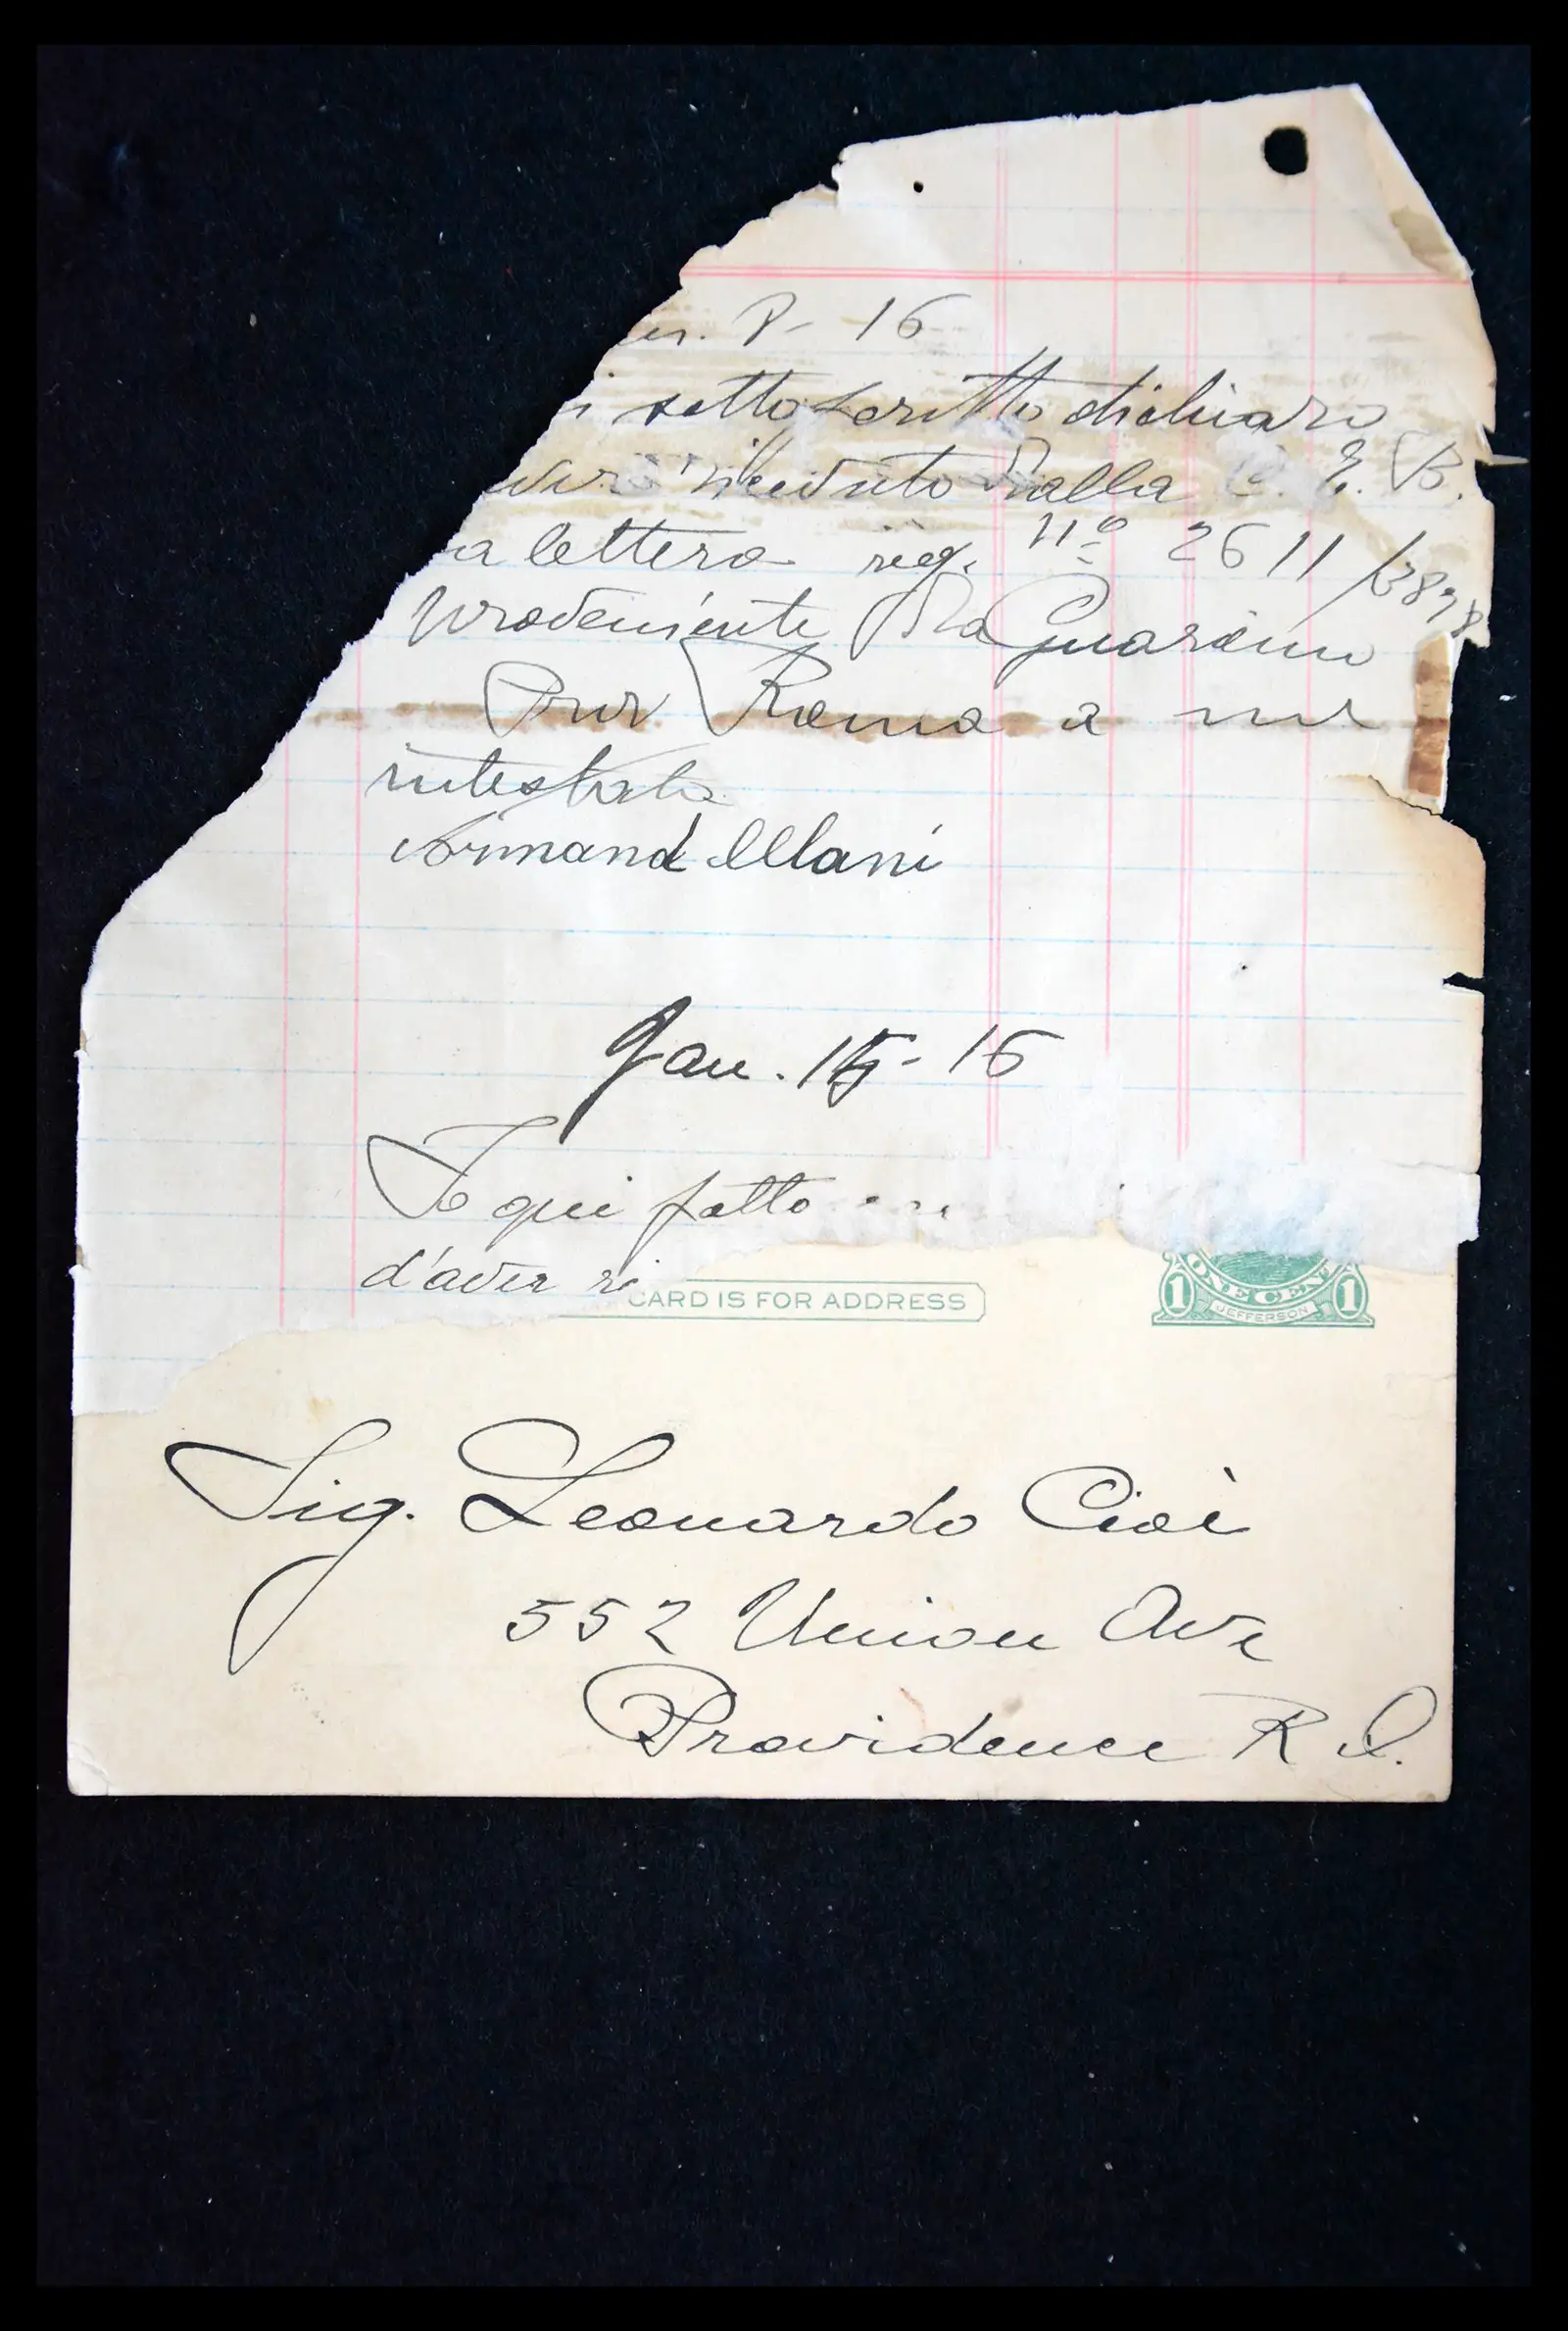 P- 16
i sottoscritto dichiaro
ricevuto dalla C. E. B.
a lettera reg. Nº 2611/3878
proveniente Da Guarcino
Prov Roma a me
intestata
Armand Mani
Jan. 15-16
Io qui fatto
d'aver ri
CARD IS FOR ADDRESS
1 ONE CENT 1
JEFFERSON
Sig. Leonardo Cioè
552 Union Ave
Providence R I.